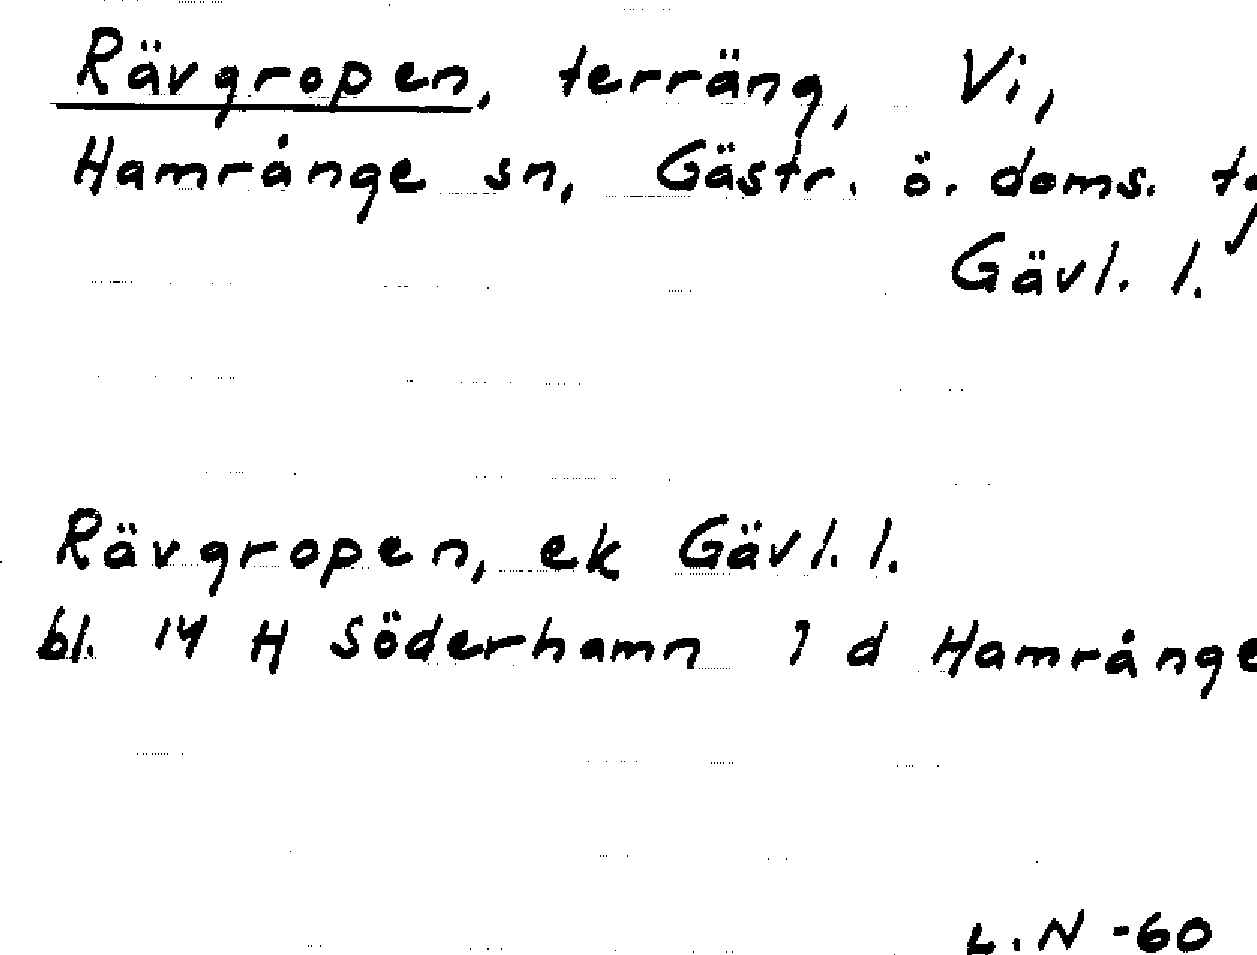 Rävgropen, terräng, Vi,
Hamrånge sn, Gästr. ö. doms. tg
Gävl. l.
Rävgropen, ek Gävl. l.
bl. 14 H Söderhamn 1 d Hamrånge
L.N -60